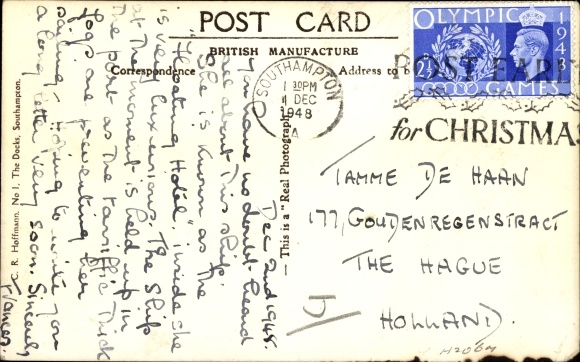 POST CARD
BRITISH MANUFACTURE
Correspondence
Address to b
OLYMPIC
GAMES
1948
2½
SOUTHAMPTON
1 30PM
1 DEC
1948
A
POST EARL
for CHRISTMA
TAMME DE HAAN
177, GOUDENREGENSTRACT
THE HAGUE
HOLLAND.
This is a "Real Photograph"
C. R. Hoffmann. No 1, The Docks, Southampton.
Dec 2nd 1948.
You have no doubt heard
all about this ship.
She is known as the
"Floating Hotel", inside she
is very luxurious. The ship
at the moment is held up in
the port as the tariffic thick
fogs are preventing her
sailing. Hoping to write you
a long letter very soon. Sincerely
Frances.